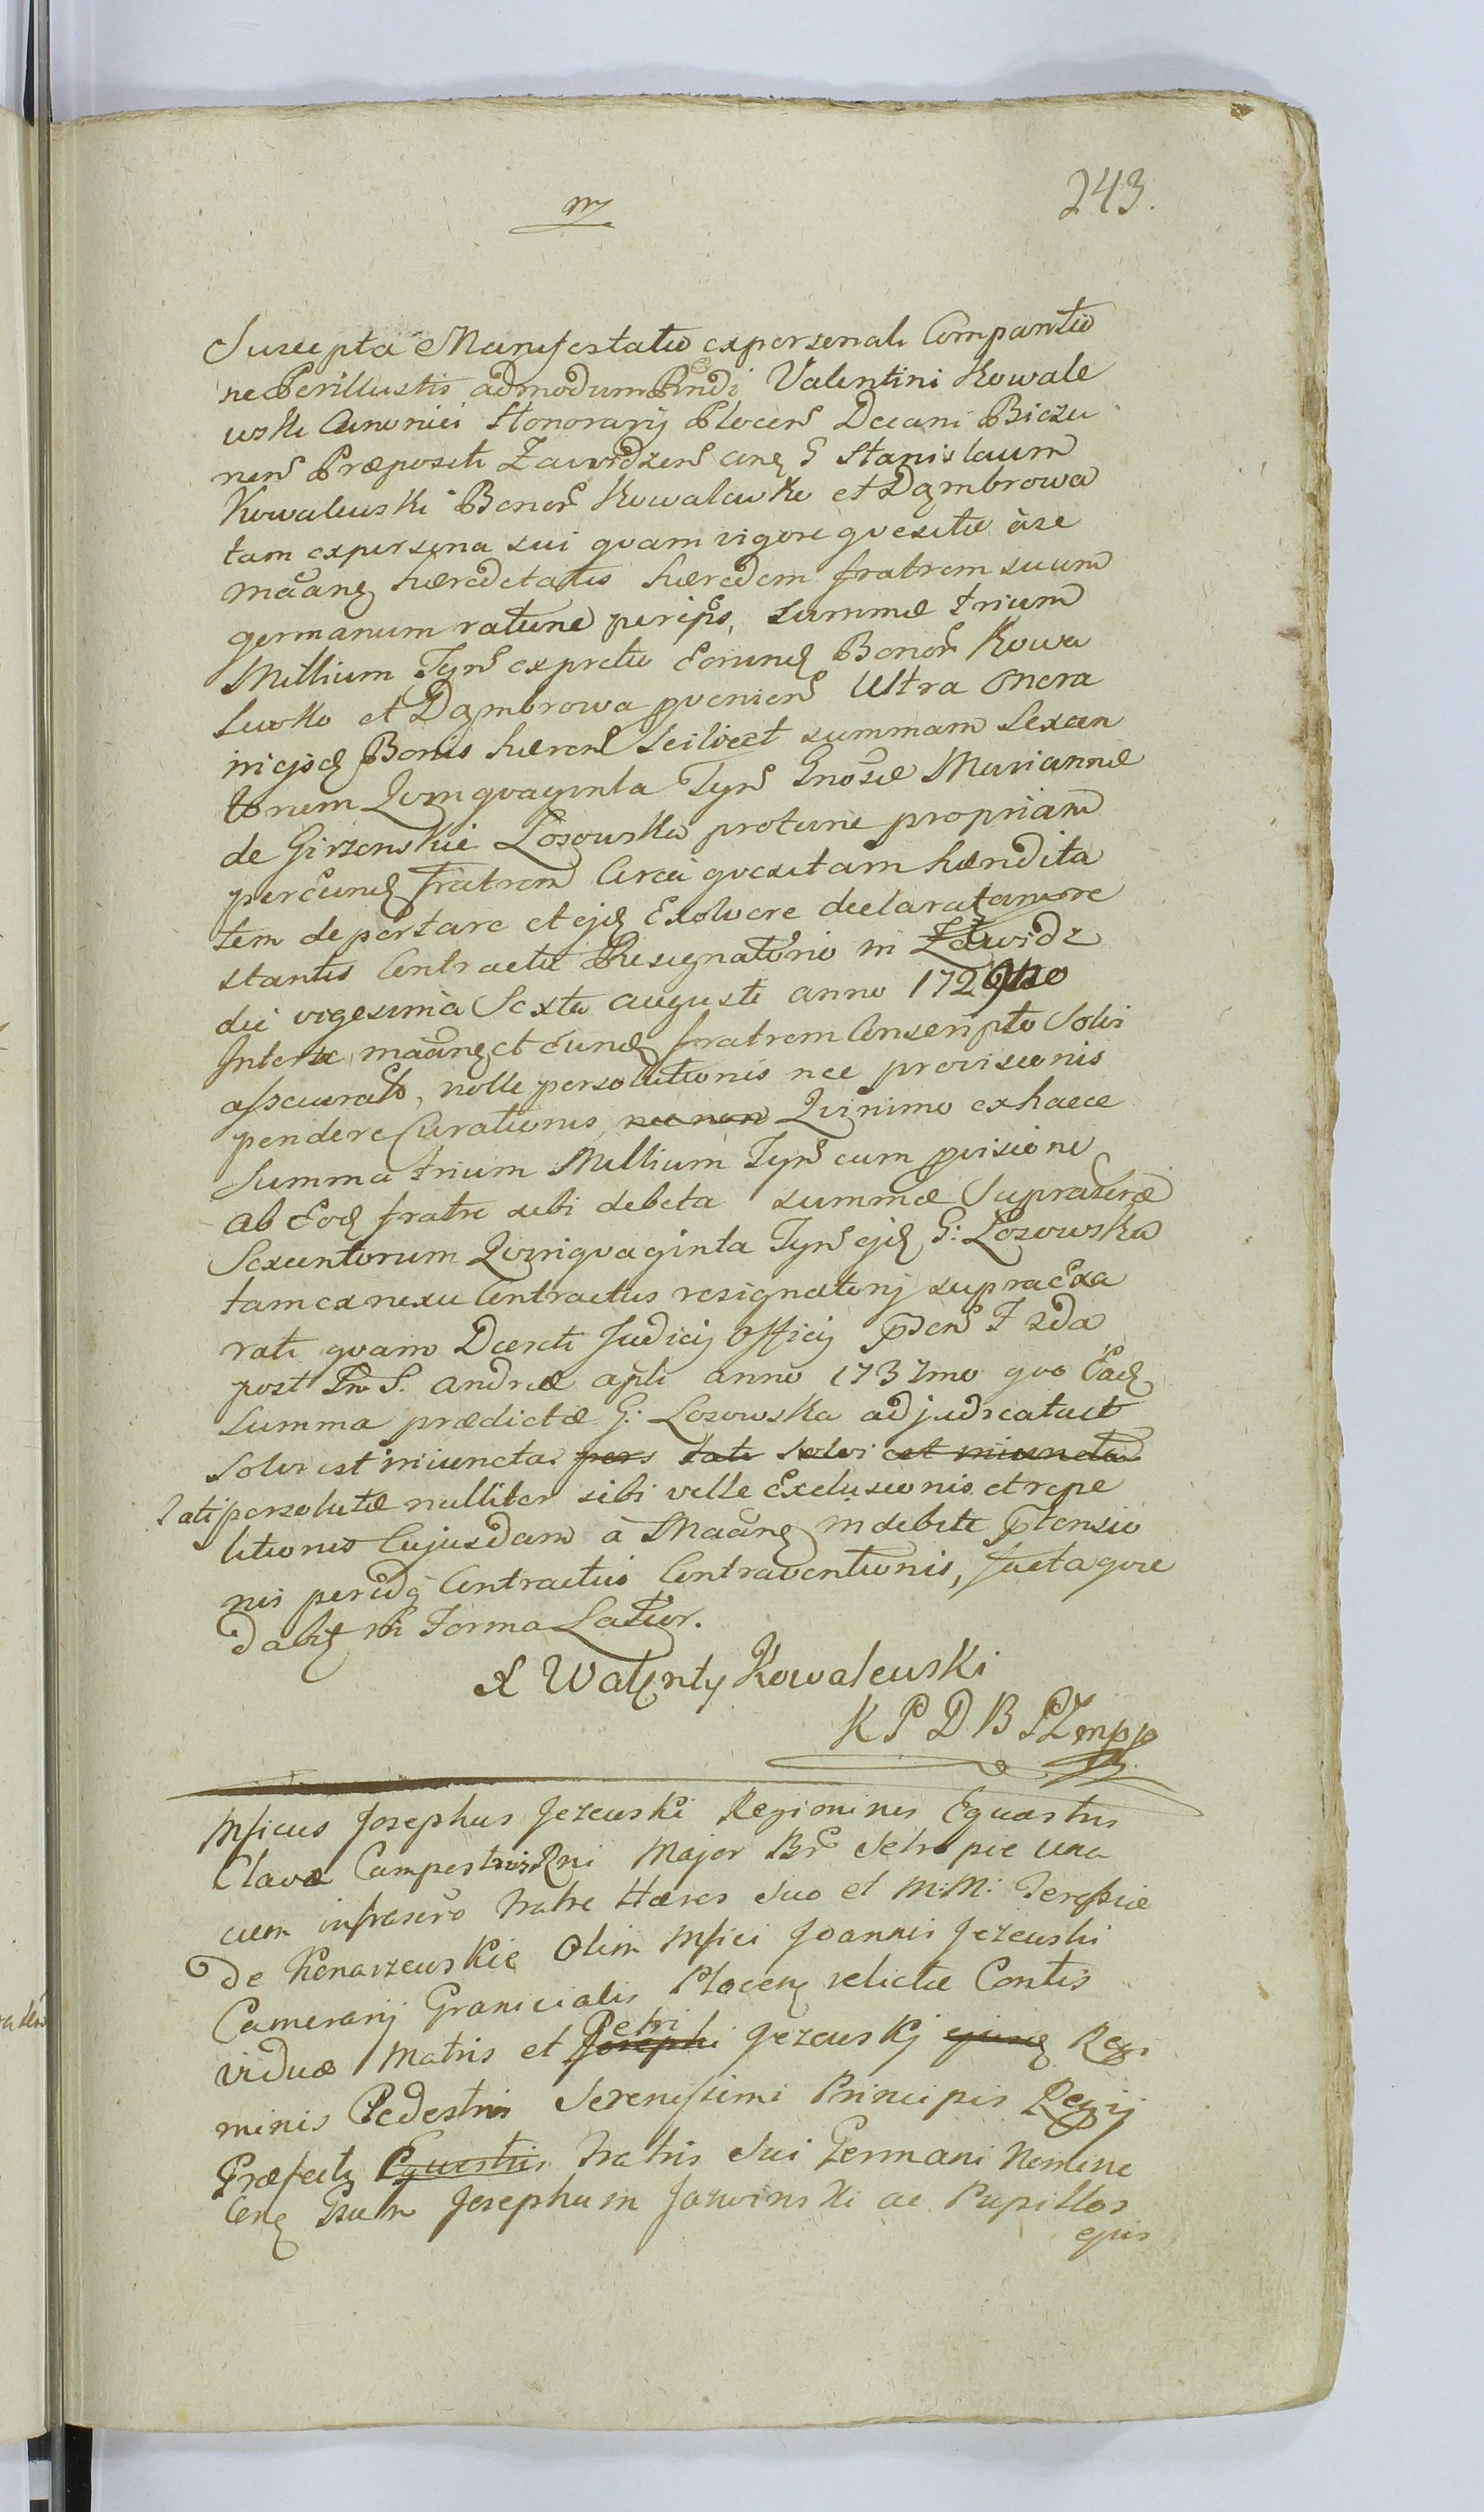 243.
Suscepta Manifestatio ex personali Comparitio
ne Perillustris admodum Rndi Valentini Kowale
wski Canonici Honorarij Plocen Decani Biezu
nen Præpositi Zawidzen cŋ G Stanislaum
Kowalewski Bonor Kowalewko et Dąmbrowa
tam ex persona sui qvam vigore qvesitæ à se
mãanŋ hæreditatis hæredem fratrem suum
germanum ratione per ips, summæ trium
Millium Tynf ex pretio Eorund Bonor Kowa
lewko et Dąmbrowa pvenien Ultra onera
in ejsd Bonis hæren Scilicet summam Sexcen
torum Qvinqvaginta Tynf Gnosæ Mariannæ
de Girzenskie Łosowska protunc propriam
per eund fratrem Circa qvesitam hæredita
tem deportare et ejd Exolvere declaratam
stantis Contractu Resignatorio in Zawidz
die vigesima Sexta augusti anno 172
Inter se mãanŋ et eund fratrem Conscripto Solvi
assecurato, nolle persolutionis nec provisionis
pendere Curationis, nec non Qvinimo ex haece
Summa trium Millium Tynf cum pvisione
ab Eod fratre sibi debita summæ Suprascræ
Sexcentorum Qvinqvaginta Tynf ejd G: Łosowska
tam ex nexu Contractus resignatorij supra Exa
rati qvam Decreti Judicij Officij pnden F 2da
post Fm S. andreæ apli anno 1737mo qvo Ead
Summa prædictæ G: Losowska adjudicata et
Solvi est iniuncta. pers lati solvi est iniuncta
lati persolutæ nulliter sibi velle Exclusionis et repe
titionis Cujusdam à Maanŋ indebite ptensio
nis per idq Contractus Contraventionis, facta qvæ
dabit in Forma Latior.
X Walęnty Kowalewski
K P D B PZ mpp
Mficus Josephus Jezewski Regiminis Equestris
Clavæ Campestris Rni Major Br Setropie una
cum infrascro fratre Hæres suo et M: M: Teressiæ
De Konarzewskie olim Mfici Joannis Jezewski
Camerarij Granicialis Plocen relictæ Contis
viduæ Matris et Josephi Petri Jezewskj ejusd Regi
minis Pedestris Serenissimi Principis Regij
Præfecti Equestris fratris sui Germani Nomine
Cŋ Gsum Josephum Jarwinski ac Pupillos
ejus